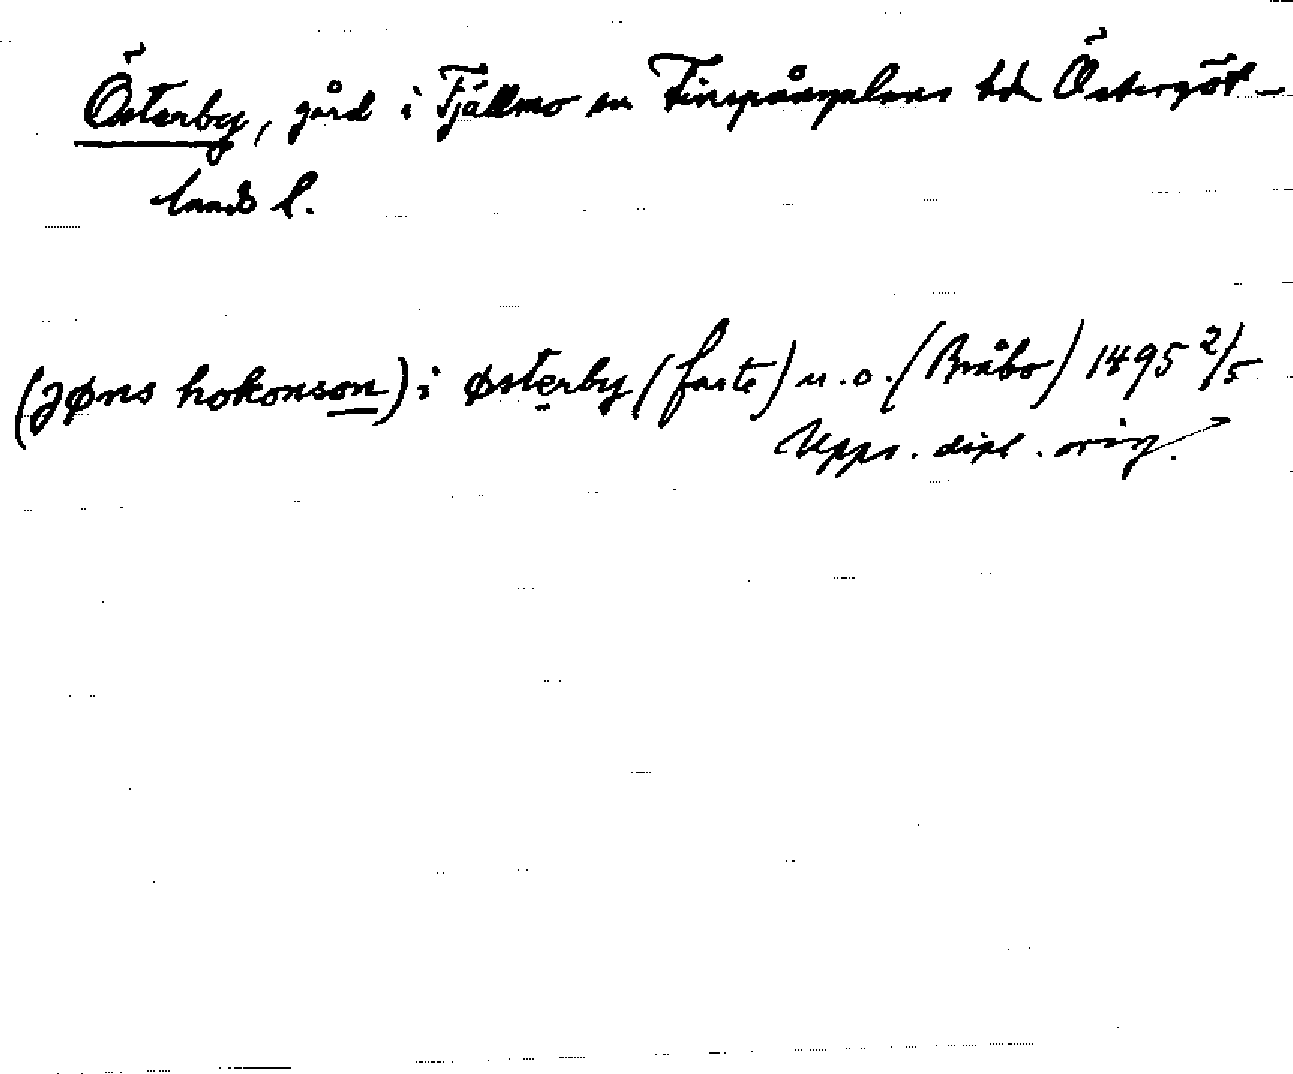 Österby, gård i Tjällmo sn Finspångaläns hd Östergöt-
lands l.
(Jøns hokonson) i østerby (faste) u.o. (Bråbo) 1495 2/5
Upps. dipl. orig.